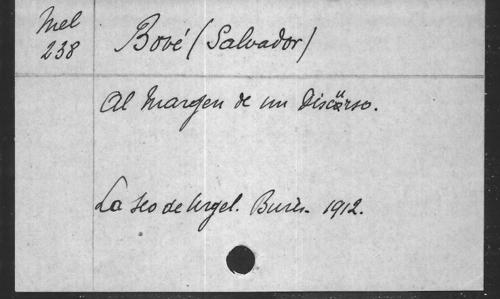 Mel
238
Bové (Salvador)
Al margen de un Discürso.
La Seo de Urgel. Burés. 1912.